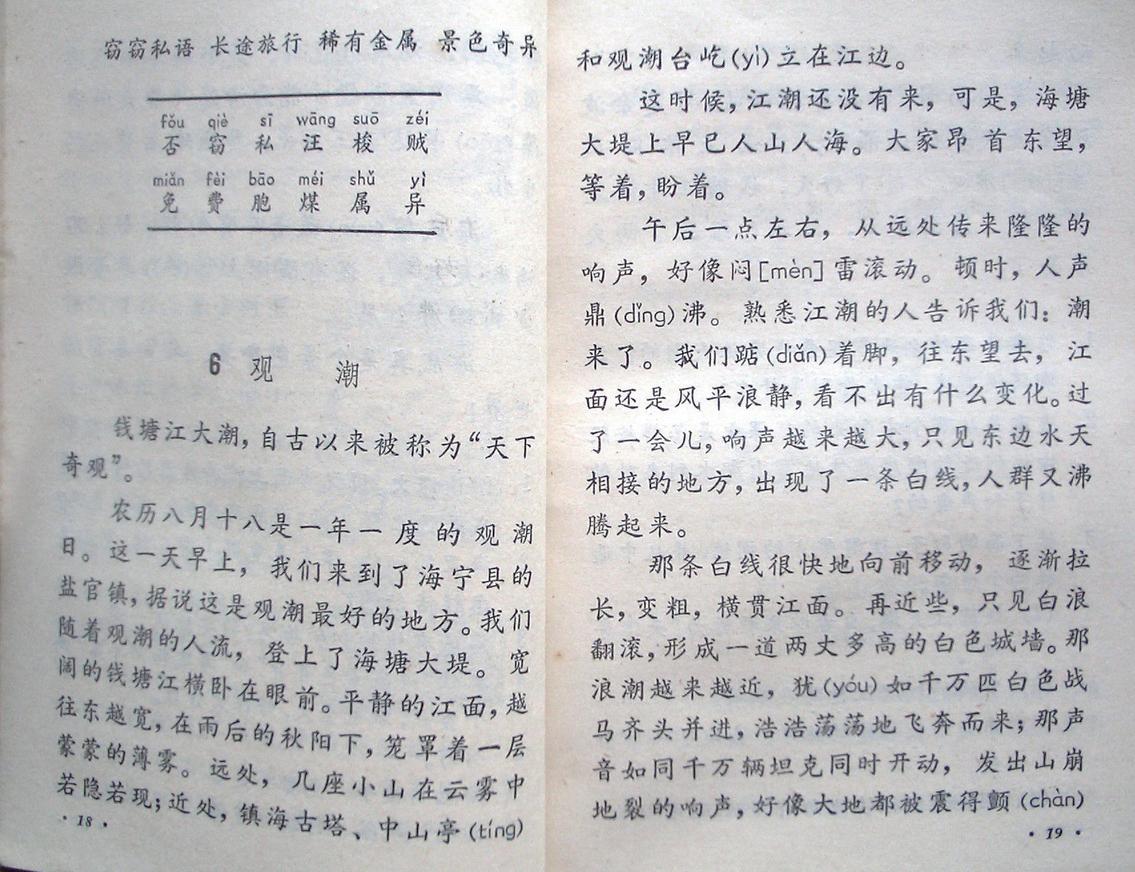 窃窃私语 长途旅行 稀有金属 景色奇异
fǒu qiè sī wāng suō zéi
否 窃 私 汪 梭 贼
miǎn fèi bāo méi shǔ yì
免 费 胞 煤 属 异
6 观 潮
钱塘江大潮，自古以来被称为“天下
奇观”。
农历八月十八是一年一度的观潮
日。这一天早上，我们来到了海宁县的
盐官镇，据说这是观潮最好的地方。我们
随着观潮的人流，登上了海塘大堤。宽
阔的钱塘江横卧在眼前。平静的江面，越
往东越宽，在雨后的秋阳下，笼罩着一层
蒙蒙的薄雾。远处，几座小山在云雾中
若隐若现；近处，镇海古塔、中山亭(tíng)
· 18 ·
和观潮台屹(yì)立在江边。
这时候，江潮还没有来，可是，海塘
大堤上早已人山人海。大家昂首东望，
等着，盼着。
午后一点左右，从远处传来隆隆的
响声，好像闷[mèn]雷滚动。顿时，人声
鼎(dǐng)沸。熟悉江潮的人告诉我们：潮
来了。我们踮(diǎn)着脚，往东望去，江
面还是风平浪静，看不出有什么变化。过
了一会儿，响声越来越大，只见东边水天
相接的地方，出现了一条白线，人群又沸
腾起来。
那条白线很快地向前移动，逐渐拉
长，变粗，横贯江面。再近些，只见白浪
翻滚，形成一道两丈多高的白色城墙。那
浪潮越来越近，犹(yóu)如千万匹白色战
马齐头并进，浩浩荡荡地飞奔而来；那声
音如同千万辆坦克同时开动，发出山崩
地裂的响声，好像大地都被震得颤(chàn)
· 19 ·